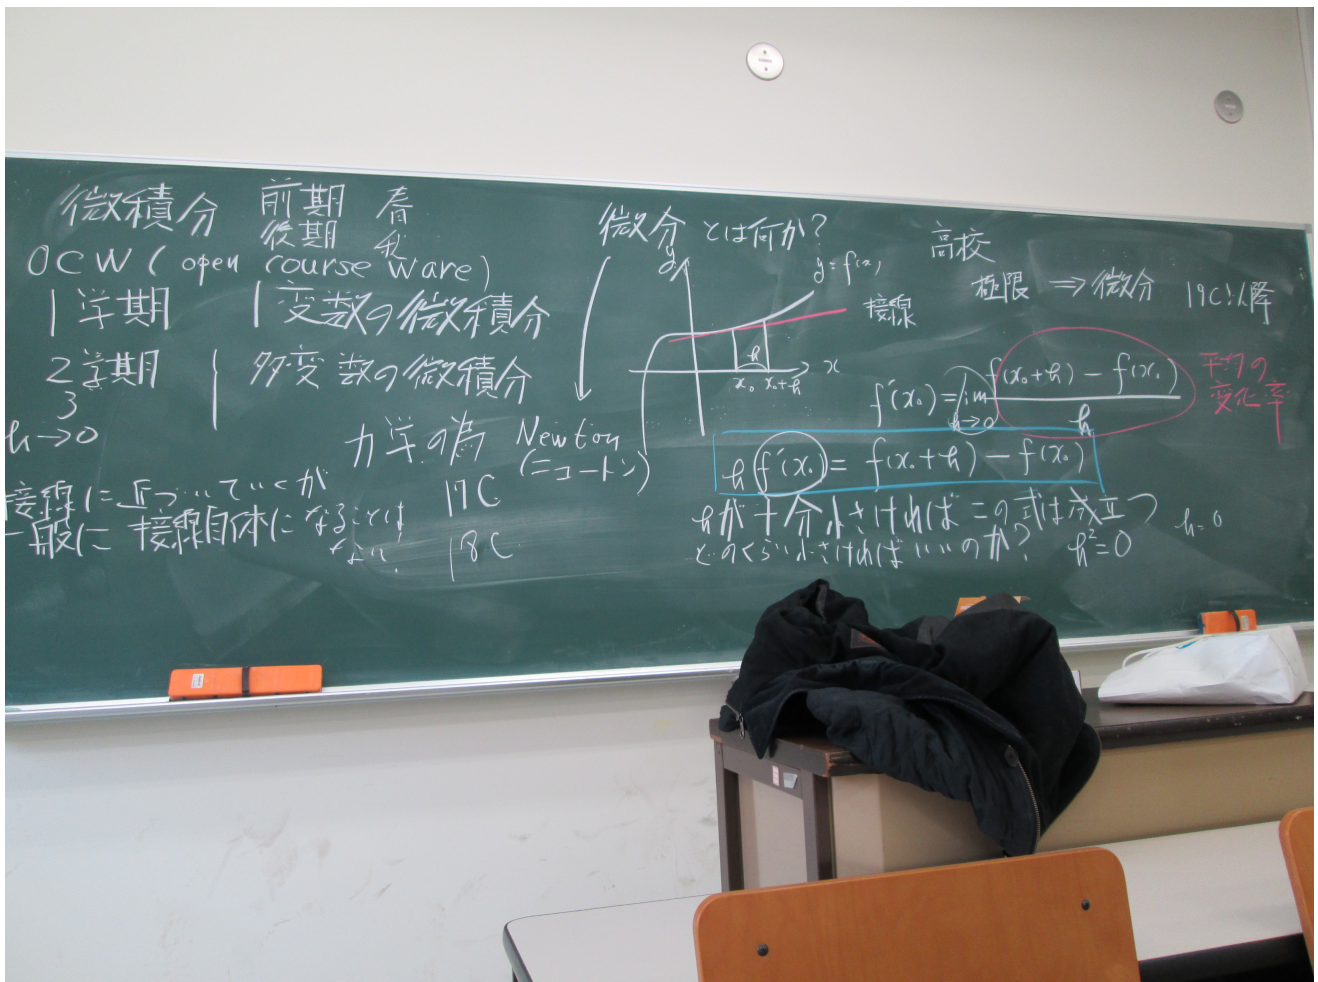 微積分 前期 春
後期 秋
OCW (open course ware)
1学期 1変数の微積分
2学期 多変数の微積分
3
h→0
力学の為 Newton
(ニュートン)
17C
18C
接線に近づいていくが
一般に接線自体になることは
ない.
微分とは何か?
y
y=f(x)
接線
h
x₀ x₀+h
x
高校
極限 ⇒ 微分 19C以降
f'(x₀)=lim h→0 f(x₀+h)-f(x₀) / h
平均の
変化率
h f'(x₀)=f(x₀+h)-f(x₀)
hが十分小さければこの式は成立つ
どのくらい小さければいいのか? h²=0 h=0